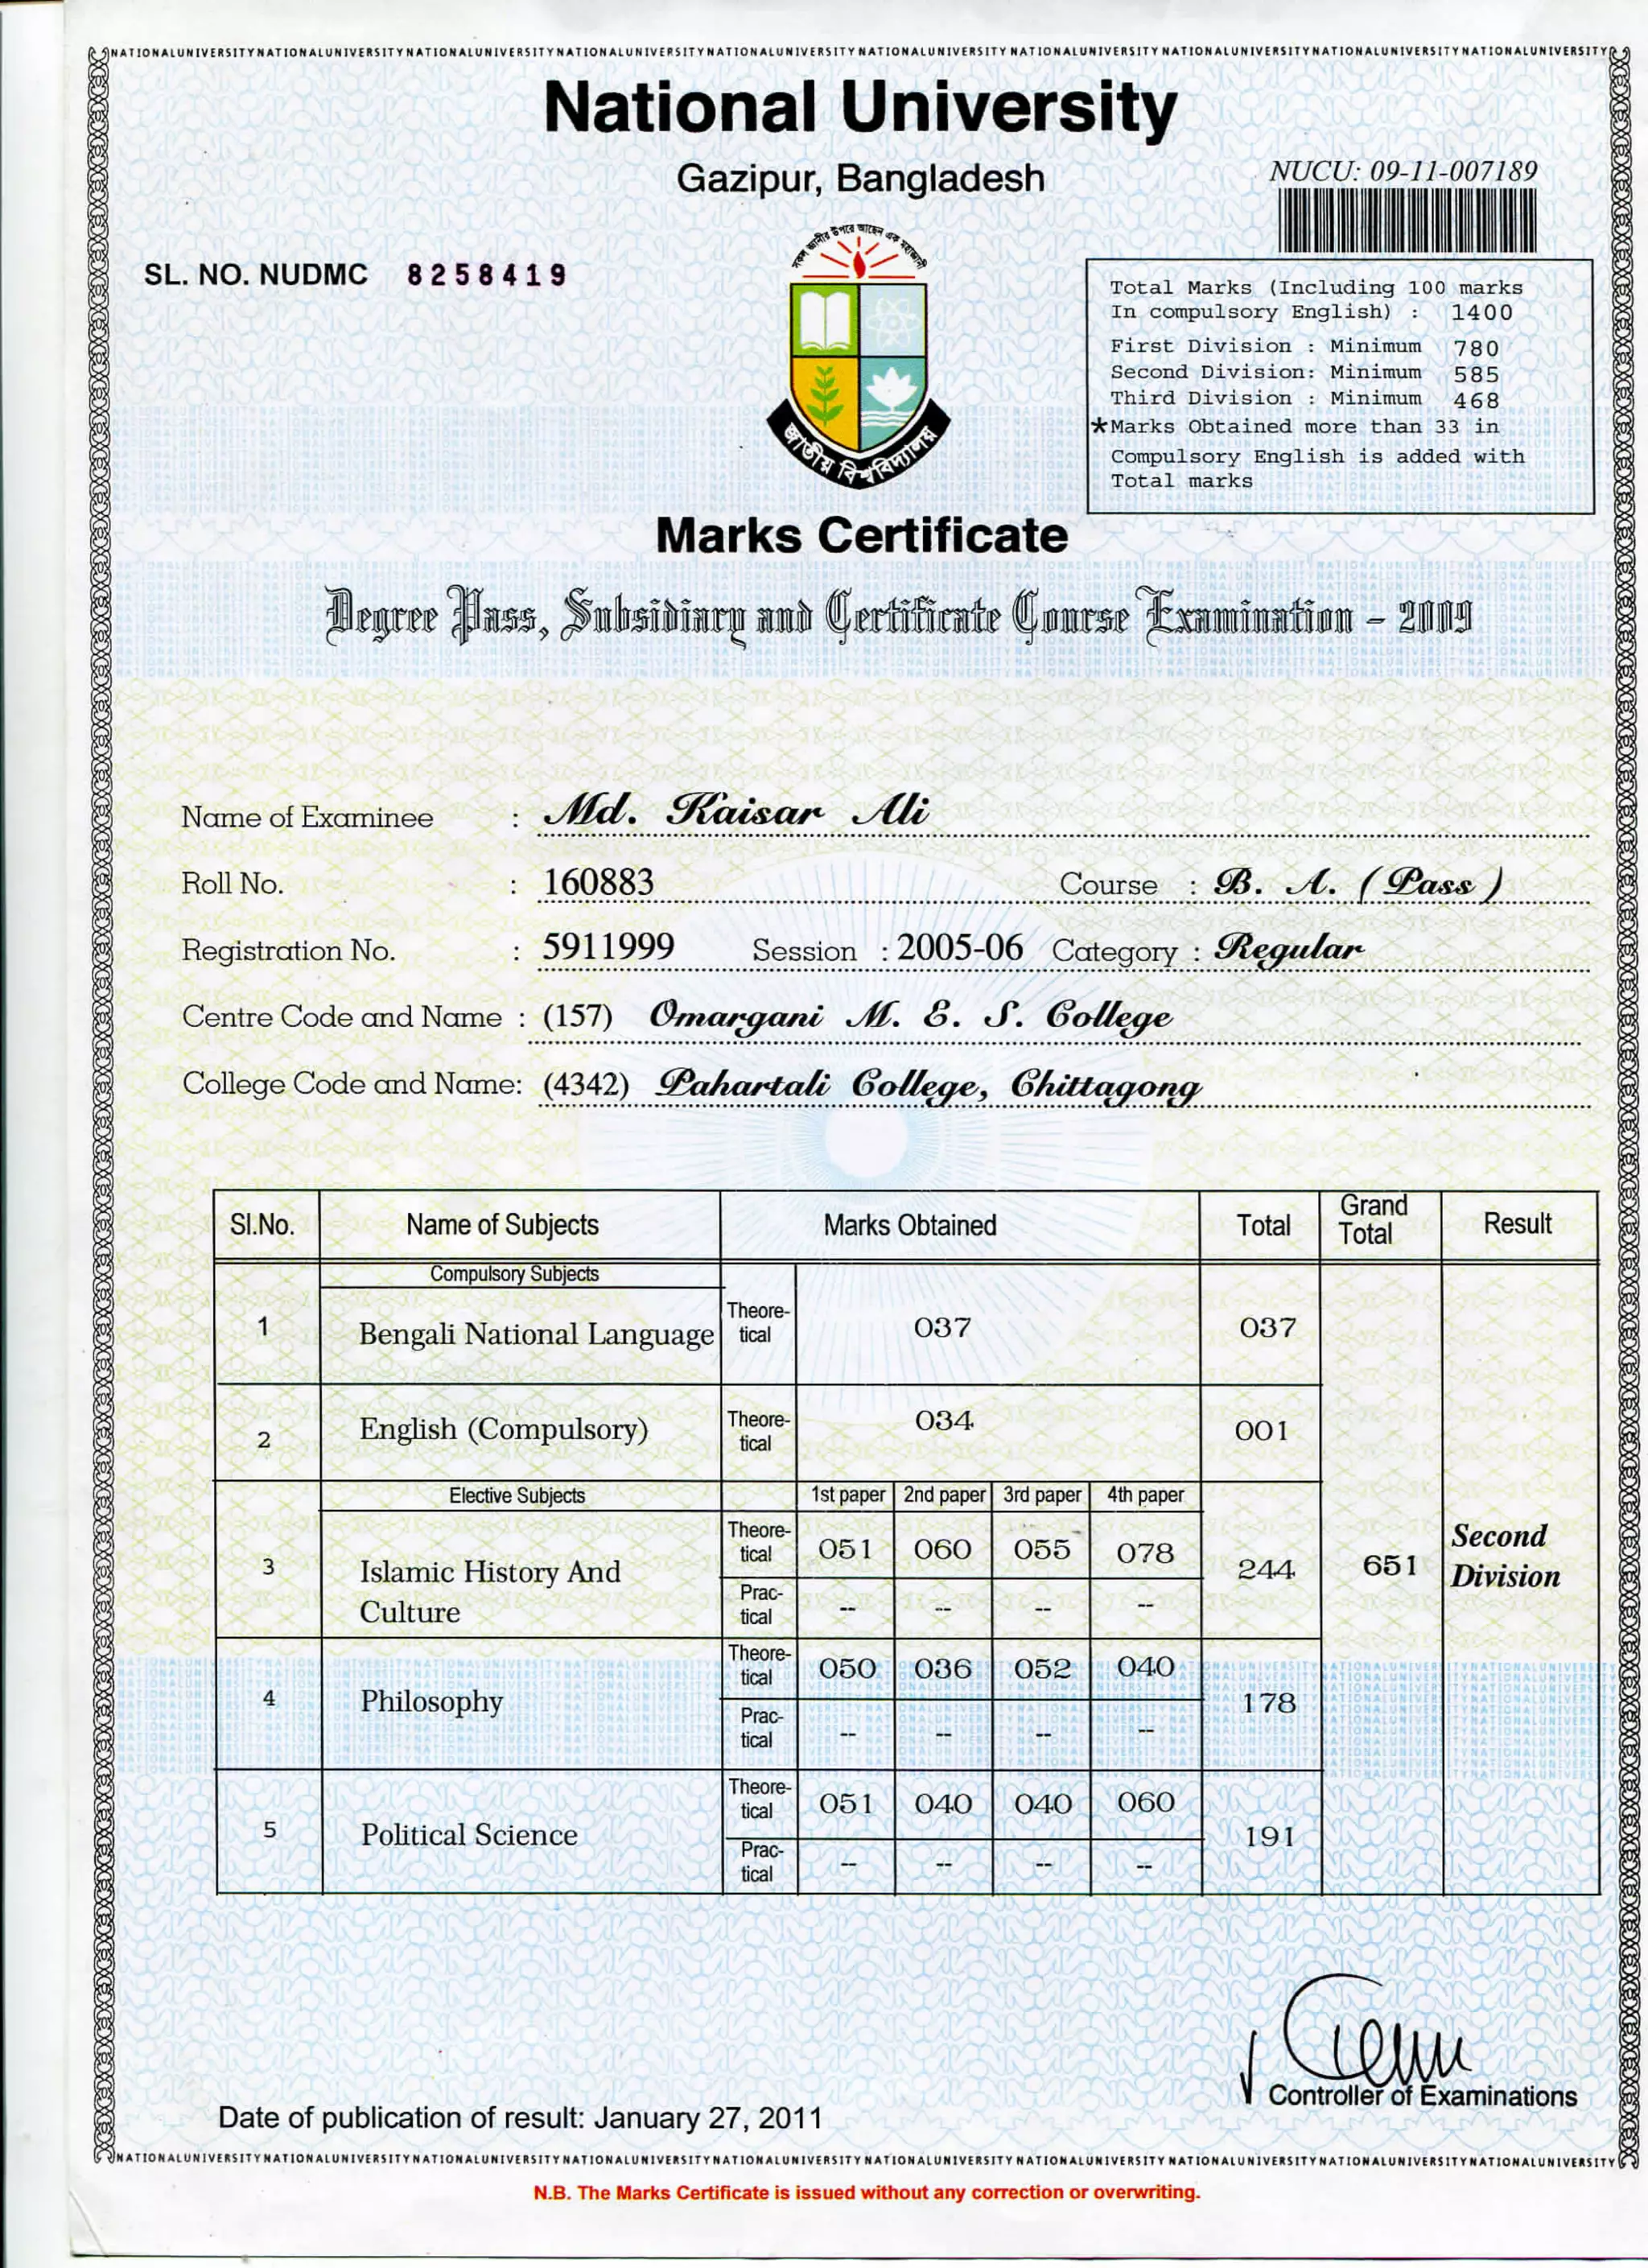 NATIONALUNIVERSITYNATIONALUNIVERSITYNATIONALUNIVERSITYNATIONALUNIVERSITYNATIONALUNIVERSITYNATIONALUNIVERSITYNATIONALUNIVERSITYNATIONALUNIVERSITYNATIONALUNIVERSITYNATIONALUNIVERSITY
National University
Gazipur, Bangladesh
NUCU: 09-11-007189
SL. NO. NUDMC 8258419
সকল জ্ঞানীর উপরে আছেন এক মহাজ্ঞানী
জাতীয় বিশ্ববিদ্যালয়
Total Marks (Including 100 marks
In compulsory English) : 1400
First Division : Minimum 780
Second Division: Minimum 585
Third Division : Minimum 468
*Marks Obtained more than 33 in
Compulsory English is added with
Total marks
Marks Certificate
Degree Pass, Subsidiary and Certificate Course Examination - 2009
Name of Examinee : Md. Kaisar Ali
Roll No. : 160883 Course : B. A. (Pass)
Registration No. : 5911999 Session : 2005-06 Category : Regular
Centre Code and Name : (157) Omargani M. E. S. College
College Code and Name: (4342) Pahartali College, Chittagong
Sl.No. Name of Subjects Marks Obtained Total Grand Total Result
Compulsory Subjects
1 Bengali National Language Theore-tical 037 037
2 English (Compulsory) Theore-tical 034 001
Elective Subjects 1st paper 2nd paper 3rd paper 4th paper
3 Islamic History And Culture Theore-tical 051 060 055 078 244 651 Second Division
Prac-tical -- -- -- --
4 Philosophy Theore-tical 050 036 052 040 178
Prac-tical -- -- -- --
5 Political Science Theore-tical 051 040 040 060 191
Prac-tical -- -- -- --
Controller of Examinations
Date of publication of result: January 27, 2011
NATIONALUNIVERSITYNATIONALUNIVERSITYNATIONALUNIVERSITYNATIONALUNIVERSITYNATIONALUNIVERSITYNATIONALUNIVERSITYNATIONALUNIVERSITYNATIONALUNIVERSITYNATIONALUNIVERSITYNATIONALUNIVERSITY
N.B. The Marks Certificate is issued without any correction or overwriting.